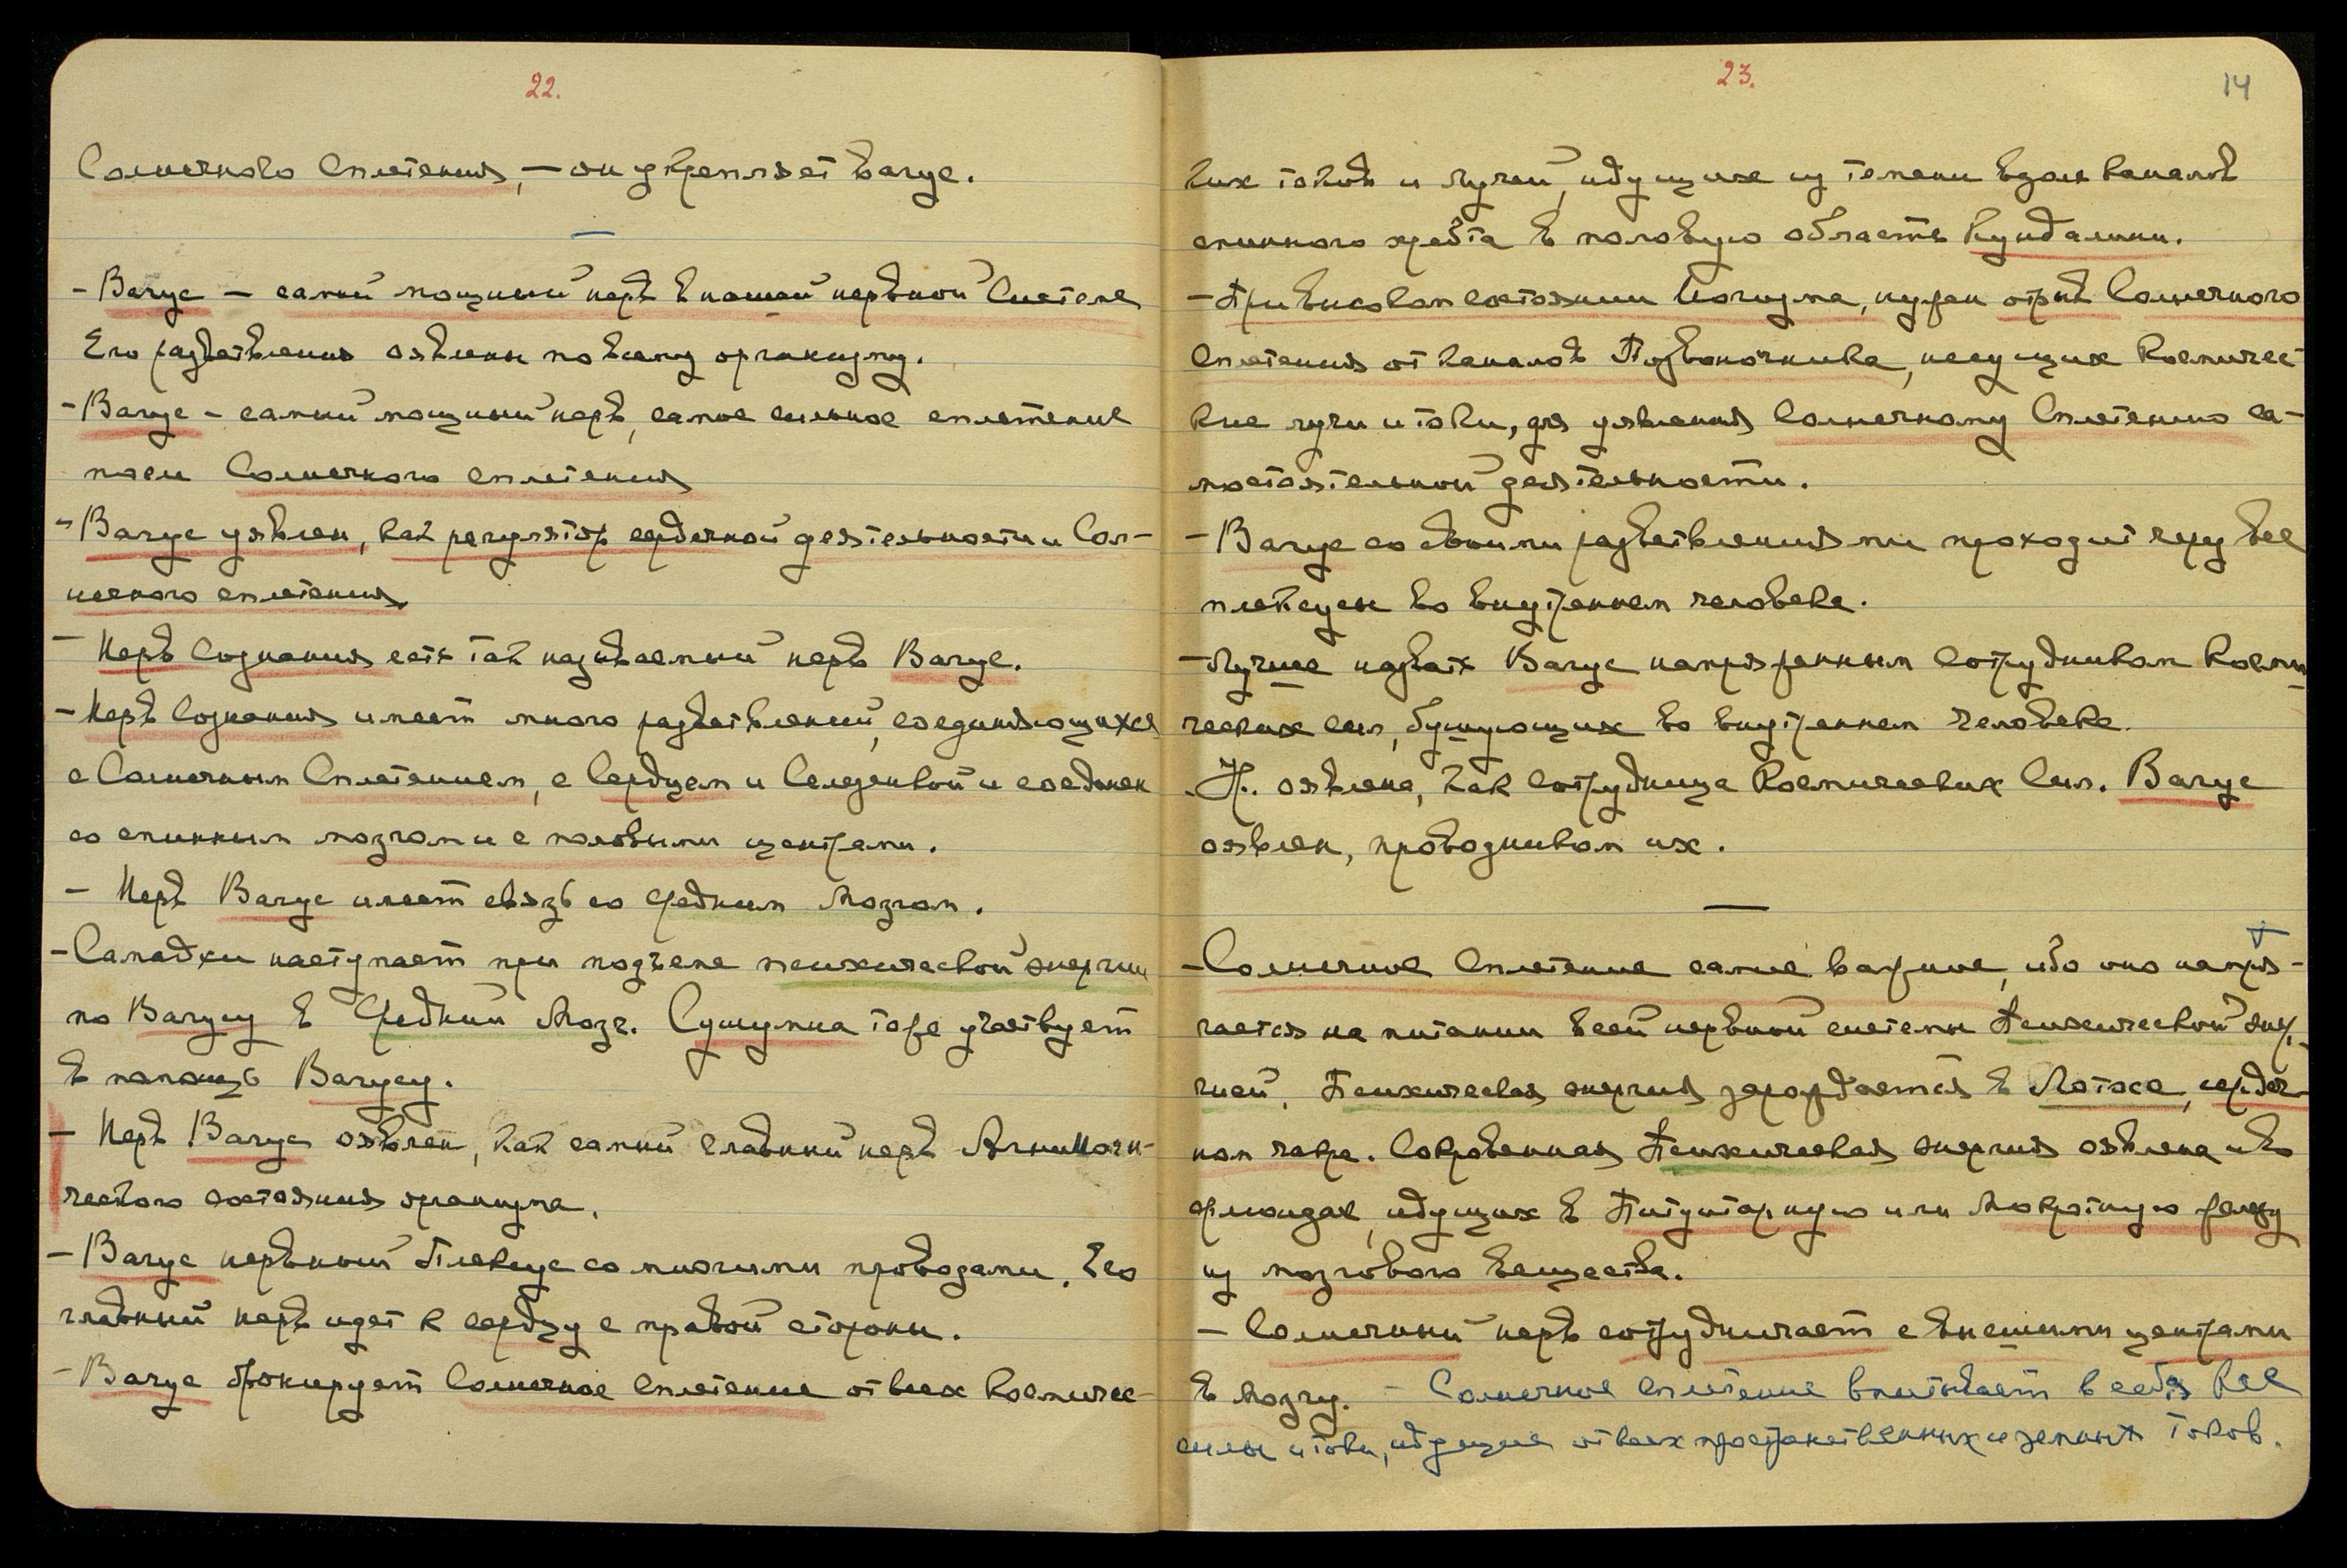 22.
Солнечного Сплетения, — он укрепляет Вагус.
- Вагус — самый мощный нерв в нашей нервной Системе
Его разветвления оявлены по всему организму.
- Вагус - самый мощный нерв, самое сильное сплетение
после Солнечного сплетения
- Вагус уявлен, как регулятор сердечной деятельности и Сол-
нечного сплетения.
- Нерв Сознания есть так называемый нерв Вагус.
- Нерв Сознания имеет много разветвлений, соединяющихся
с Солнечным Сплетением, с Сердцем и Селезенкой и соединен
со спинным мозгом и с половыми центрами.
- Нерв Вагус имеет связь со средним Мозгом.
- Самадхи наступает при подъеме психической энергии
по Вагусу в Средний Мозг. Сушумна тоже участвует
в помощь Вагусу.
- Нерв Вагус оявлен, как самый главный нерв Агни Йоги-
ческого состояния организма.
- Вагус нервный Плексус со многими проводами. Его
главный нерв идет к сердцу с правой стороны.
- Вагус бронирует Солнечное Сплетение от всех Космичес-
23.
14
ких токов и лучей, идущих из темени вдоль каналов
спинного хребта в половую область Кундалини.
- При высоком состоянии Йогизма, нужен отрыв Солнечного
Сплетения от каналов Позвоночника, несущих Космичес-
кие лучи и токи, для уявления Солнечному Сплетению са-
мостоятельной деятельности.
- Вагус со своими разветвлениями проходит через все
плексусы во внутреннем человеке.
- Лучше назвать Вагус напряженным сотрудником Косми-
ческих сил, бушующих во внутреннем человеке.
- У. оявлена, как сотрудница Космических Сил. Вагус
оявлен, проводником их.
- Солнечное Сплетение самое важное, ибо оно напря-
гается на питании всей нервной системы Психической энер-
гией. Психическая энергия зарождается в Лотосе, сердеч-
ном чакре. Сокровенная Психическая энергия оявлена и во
флюидах, идущих в Питуитарную или Мокротную железу
из мозгового вещества.
- Солнечный нерв сотрудничает с внешними центрами
в мозгу. - Солнечное сплетение впитывает в себя все
силы и токи, идущие от всех пространственных и земных токов.